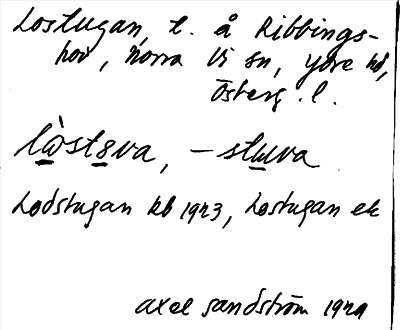 Lostugan, t. å Ribbings-
hov, Norra Vi sn, Ydre hd,
Österg. l.
lòstɵva, -stuva
Lodstugan kb 1923, Lostugan ek
Axel Sandström 1929